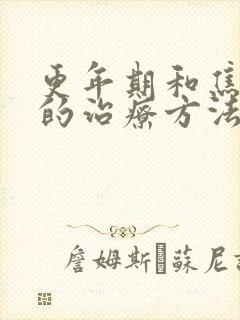 更年期和焦
的治療方法
詹姆斯·蘇尼